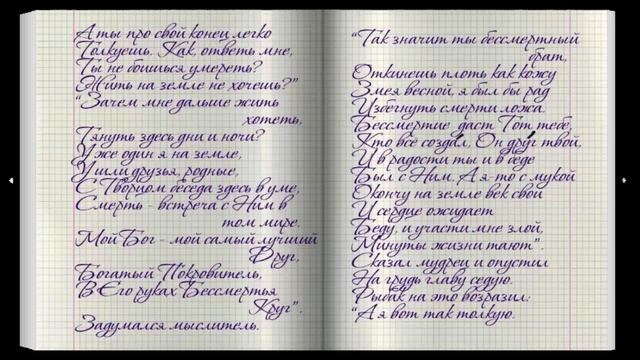 А ты про свой конец легко
Толкуешь. Как, ответь мне,
Ты не боишься умереть?
Жить на земле не хочешь?"
"Зачем мне дальше жить
хотеть,
Тянуть здесь дни и ночи?
Уже один я на земле,
Ушли друзья, родные,
С Творцом беседа здесь в уме,
Смерть - встреча с Ним в
том мире.
Мой Бог - мой самый лучший
Друг,
Богатый Покровитель,
В Его руках Бессмертья
Круг",
Задумался мыслитель.
"Так значит ты бессмертный
брат,
Откинешь плоть как кожу
Змея весной, я был бы рад
Избегнуть смерти ложа.
Бессмертие даст Тот тебе,
Кто всё создал, Он друг твой,
И в радости ты и в беде
Был с Ним. А я-то с мукой
Окончу на земле век свой
И сердце ожидает
Беду, и участи мне злой,
Минуты жизни тают".
Сказал мудрец и опустил
На грудь главу седую.
Рыбак на это возразил:
"А я вот так толкую.